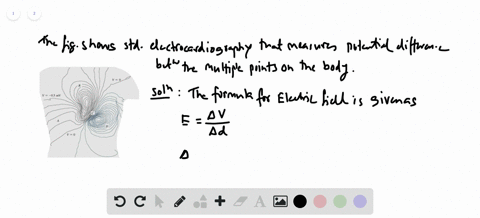 The fig. shows std. electrocardiography that measures potential difference
betn the multiple points on the body.
Soln : The formula for Electric field is given as
E = ΔV/Δd
Δ